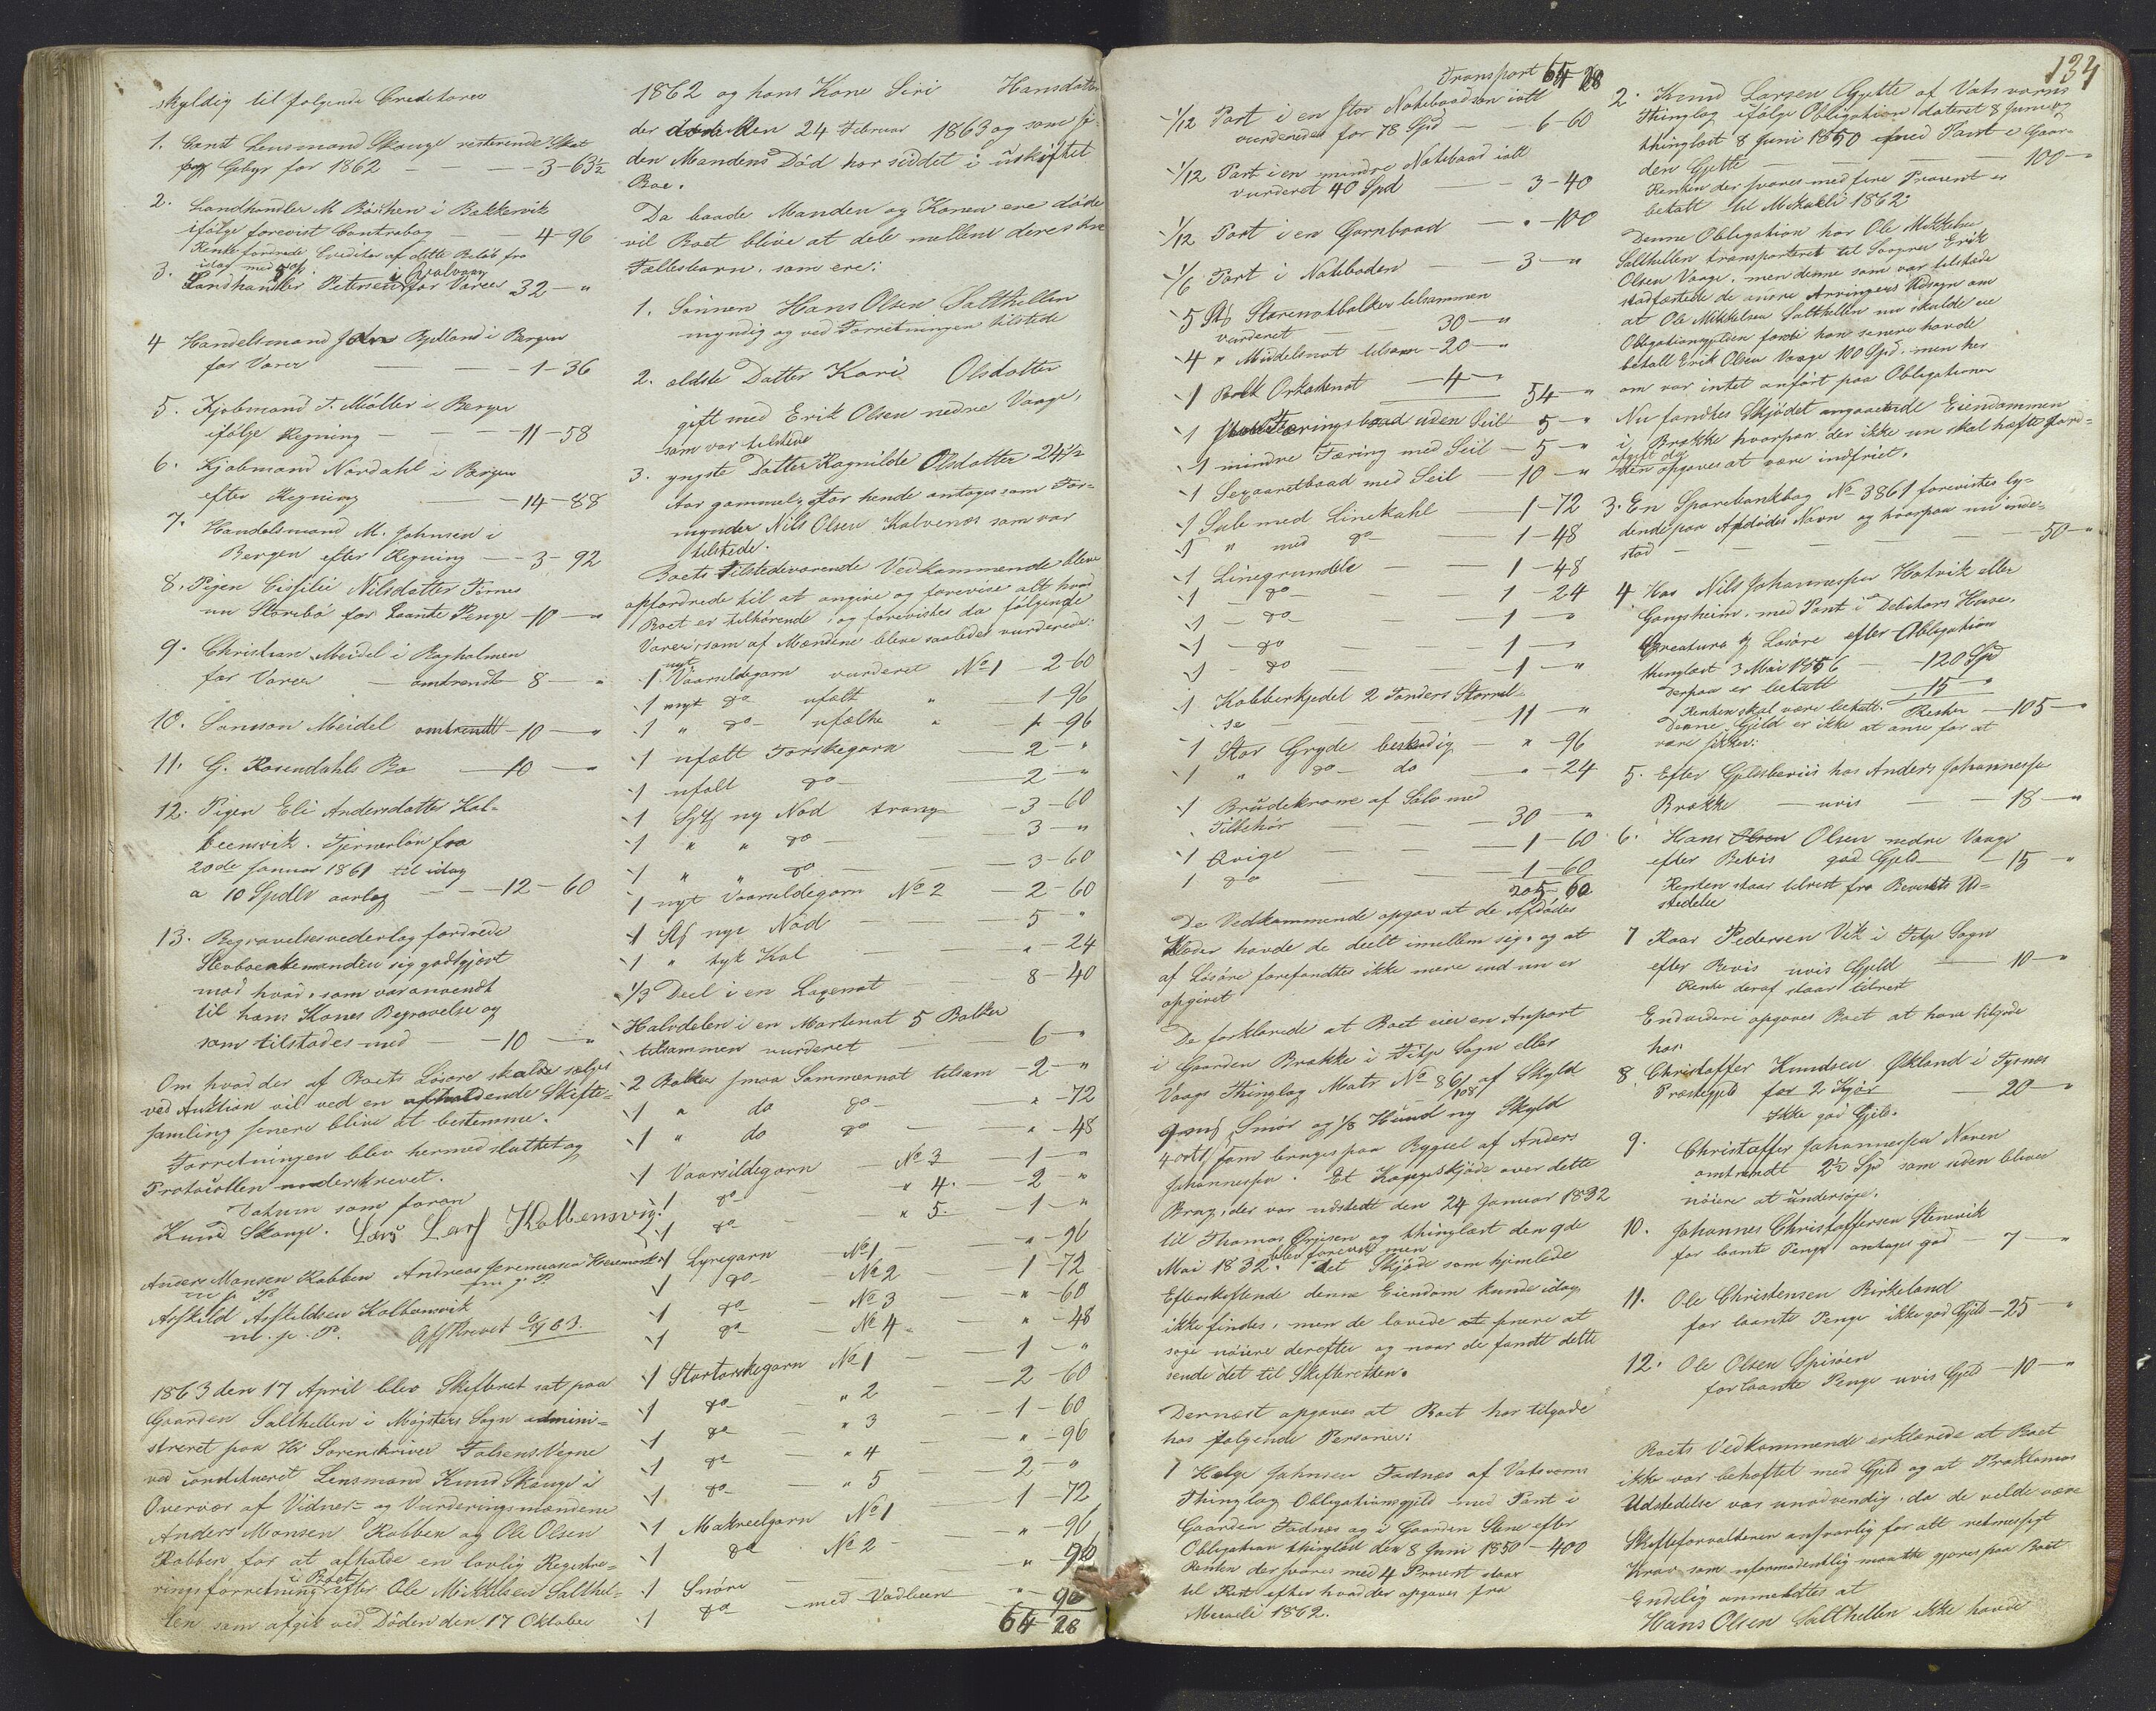 skyldig til følgende Creditorer
1. Const Lensmand Skauge resterende Skat
og Gebyr for 1862 — — — 3-63½
2. Landhandler M Böschen i Bekkervik
ifølge forevist Contrabog — 4-96
Rente fordrede Creditor af dette Beløb fra
idag med 5 af.
3. Landhandler Petersen i Godøsund for Varer 32 — "
4 Handelsmand John Bjelland i Bergen
for Varer — — — 1-36
5. Kjøbmand T. Møller i Bergen
ifølge Regning — — — 11-58
6. Kjøbmand Nordahl i Bergen
efter Regning — — 14-88
7. Handelsmand M. Johnsen i
Bergen efter Regning — — 3-92
8. Pigen Cisselie Nilsdatter Fornes
nu Storebø for laante Penge — 10 — "
9. Christian Meidel i Bagholmen
for Varer — omtrendt — 8 — "
10. Samson Meidel omtrendt — 10 — "
11. G. Rosendahls Bo — 10 — "
12. Pigen Eli Andersdatter Kol-
beensvik. Tjenerløn fra
20de Januar 1861 til idag
a 10 Spdlr aarlig — — 12-60
13. Begravelsesvederlag fordrede
Stervboenkemanden sig godtgjort
mod hvad, som var anvendt
til hans Kones Begravelse og
som tilstodes med — — 10 — "
Om hvad der af Boets Løsøre skulde sælges
ved Auktion vil ved en afholdende Skifte-
samling senere blive at bestemme.
Forretningen blev hermed sluttet og
Protocollen underskrevet.
Datum som foran
Knud Skauge. Lars Lars Kolbensvig!
Anders Monsen Rabben Andreas Jeremiasen
m. p. P. m. p. P.
Asskild Asskildsen Kolbeensvik
m. p. P. Afskrevet
1863 den 17 April blev Skifteret sat paa
Gaarden Salthellen i Møgsters Sogn admini-
streret paa Hr Sorenskriver Falsens Vegne
ved constitueret Lensmand Knud Skauge i
Overvær af Vidner- og Vurderingsmændene
Anders Monsen Rabben og Ole Olsen
Rabben for at afholde en lovlig Registre-
ringsforretning i Boet efter Ole Mikkelsen Salthel-
len som afgik ved Døden den 17 Oktober
1862 og hans Kone Siri Hansdatter
der døde den 24 Februar 1863 og som si-
den Mandens Død har siddet i uskiftet
Boe.
Da baade Manden og Konen ere døde
vil Boet blive at dele mellem deres tre
Fællesbarn, som ere:
1. Sønnen Hans Olsen Salthellen
myndig og ved Forretningen tilstede
2. ældste Datter Kari Olsdatter
gift med Erik Olsen nedre Vaage,
som var tilstede
3. yngste Datter Ragnilde Olsdatter 24½
Aar gammel, for hende antages som For-
mynder Nils Olsen Kalvenes som var
tilstede.
Boets tilstedeværende Vedkommende bleve
opfordrede til at angive og forevise alt hvad
Boet er tilhørende, og forevistes da følgende
Varer, som af Mændene bleve saaledes vurderede:
1 nyt Vaarsildegarn vurderet No 1 — 2-60
1 nyt do ufælt " — 1-96
1 " do ufælte " — 1-96
1 ufælt Torskegarn — 2 — "
1 ufælt do — 2 — "
1 Stf ny Nod trang — 3-60
1 " " do — 3 — "
1 " " do — 3-60
1 nyt Vaarsildegarn No 2 — 2-60
1 Stf nye Nod — 5 — "
1 " tyk Kal — " - 24
1/3 Deel i en Laxenot — 8-40
Halvdelen i en Mortenot 5 Bolker
tilsammen vurderet — 6 — "
2 Bolker smaa Sommernot tilsam — 2 — "
1 " do do — " - 72
1 " do do — " - 48
1 Vaarsildegarn — No 3 — 1 — "
1 do — " 4. — 2 — "
1 do — " 5 — 1 — "
1 Lyregarn — No 1 — " - 96
1 do — No 2 — 1-72
1 do — No 3 — " - 60
1 do — No 4 — " - 48
1 Stortorskegarn No 1 — 1 — "
1 do — " 2 — 2-60
1 do — " 3 — 1-60
1 do — " 4 — " - 96
1 do — " 5 — 2 — "
1 Makreelgarn No 1 — 1-72
1 do No 2 — " - 96
1 Snøre — " - 90
1 do — med Vadbeen — " - 90
64-28
134
Transport 64-28
1/12 Part i en stor Notebaadson ialt
vurderedes for 78 Spd — — 6-60
1/12 Part i en mindre Notebaad ialt
vurderet 40 Spd — — 3-40
1/12 Part i en Garnbaad — " - 100
1/6 Part i Noteboden — — 3 — "
5 Stf Storenotbolker tilsammen
vurderet — 30 — "
4 " Middelsnot tilsam — 20 — "
1 Bolk Orkatenot — 4 — " 54 — "
1 Færingsbaad uden Seil 5 — "
1 mindre Færing med Seil — 5 — "
1 Sexaaretbaad med Seil 10 — "
1 Sule med Linekahl — 1-72
1 " med do — 1-48
1 Linegrundele — 1-48
1 do — 1-24
1 — do — 1 — "
1 — do — 1 — "
1 — do — 1 — "
1 Kobberkjedel 2 Tønders Størrel-
se — 11 — "
1 Stor Gryde beskadig — " - 96
1 " do do — " - 24
1 Brudekrone af Sølv med
Tilbehør — 30 — "
1 Qvige — 1-60
1 do — 1-60
205-60
De Vedkommende opgav at de Afdødes
Klæder havde de deelt imellem sig, og at
af Løsøre forefandtes ikke mere end nu er
opgivet
De forklarede at Boet eier en Anpart
i Gaarden Brække i Fitje Sogn eller
Vaags Thinglag Matr No 86/108 af Skyld
Smør og 1/8 Hund ny Skyld
4 ort, som bruges paa Bygsel af Anders
Johannessen. Et Kongeskjøde over dette
Brug, der var udstedt den 24 Januar 1832
til Thomas Ørjesen og thinglæst den 9de
Mai 1832 blev forevist, men det Skjøde som hjemlede
Efterskiftende denne Eiendom kunde idag
ikke findes, men de lovede at snere at
søge nøiere derefter og naar de fandt dette
sende det til Skifteretten.
Dernæst opgaves at Boet har tilgode
hos følgende Personer:
1 Helge Johnsen Fadnes af Vatsværns
Thinglag Obligationsgjeld med Pant i
Gaarden Fadnes og i Gaarden Stene efter
Obligation thinglæst den 8 Juni 1850 — 400
Renten der svares med 4 Procent staar
til Rest efter hvad der opgaves fra
Micaeli 1862.
2. Knud Larsen Gjette af Vatsværns
Thinglag ifølge Obligation dateret 8 Juni og
thinglæst 8 Juni 1850 med Pant i Gaar-
den Gjette — — — 100 — "
Renten der svares med fire Procent er
betalt til Mikaeli 1862
Denne Obligation har Ole Mikkelsen
Salthellen transporteret til Svogrer Erik
Olsen Vaage, men denne som var tilstede
stadfæstede de øvrige Arvingers Udsagn om
at Ole Mikkelsen Salthellen nu skulde eie
Obligationgjelden fordi han senere havde
betalt Erik Olsen Vaage 100 Spd, men her
om var intet anført paa Obligationen
Nu fandtes Skjødet angaaende Eiendommen
i Brække hvorpaa der ikke nu skal hæfte Gjeld
den opgaves at være indfriet.
3. En Sparebankbog No 3861 forevistes ly-
dende paa Afdødes Navn og hvorpaa nu inde-
stod — — — — 50 — "
4 Hos Nils Johannessen Hatvik eller
Gangsheim, med Pant i Debitors Huse,
Creature og Løsøre efter Obligation
thinglæst 3 Mai 1856 — 120 Spd
Derpaa er betalt — 15 — "
Renten skal være betalt. Rester — 105 — "
Denne Gjeld er ikke at anse for at
være sikker.
5. Efter Gjeldsbeviis hos Anders Johannessen
Brække — uvis — — 18 — "
6. Hans Olsen nedre Vaage
efter Bevis god Gjeld — 15 — "
Renten staar tilrest fra Bevisets Ud-
stedelse
7 Roar Pedersen Vik i Fitje Sogn
efter Bevis uvis Gjeld — 10 — "
Rente deraf staar tilrest
Endvidere opgaves Boet at have tilgode
hos
8. Christoffer Knudsen Økland i Tysnes
Præstegjeld for 2 Kjør — 20 — "
Ikke god Gjeld.
9. Christoffer Johannessen Naven
omtrendt 2½ Spd som siden bliver
nøiere at undersøge.
10. Johannes Christoffersen Stenevik
for laante Penge antages god — 7 — "
11. Ole Christensen Birkeland
for laante Penge ikke god Gjeld — 25 — "
12. Ole Olsen Spisøen
for laante Penge uvis Gjeld — 10 — "
Boets Vedkommende erklærede at Boet
ikke var behæftet med Gjeld og at Proklamas
Udstedelse var unødvendig, da de vilde være
Skifteforvalteren ansvarlig for alt retmessigt
Krav som uformodentlig maatte gjøres paa Boet
Endelig anmeldtes at
Hans Olsen Salthellen ikke havde